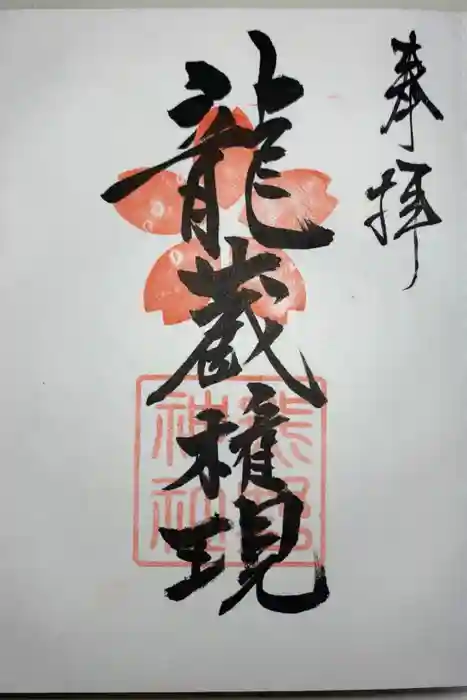 奉拝
龍蔵権現
熊野
神社